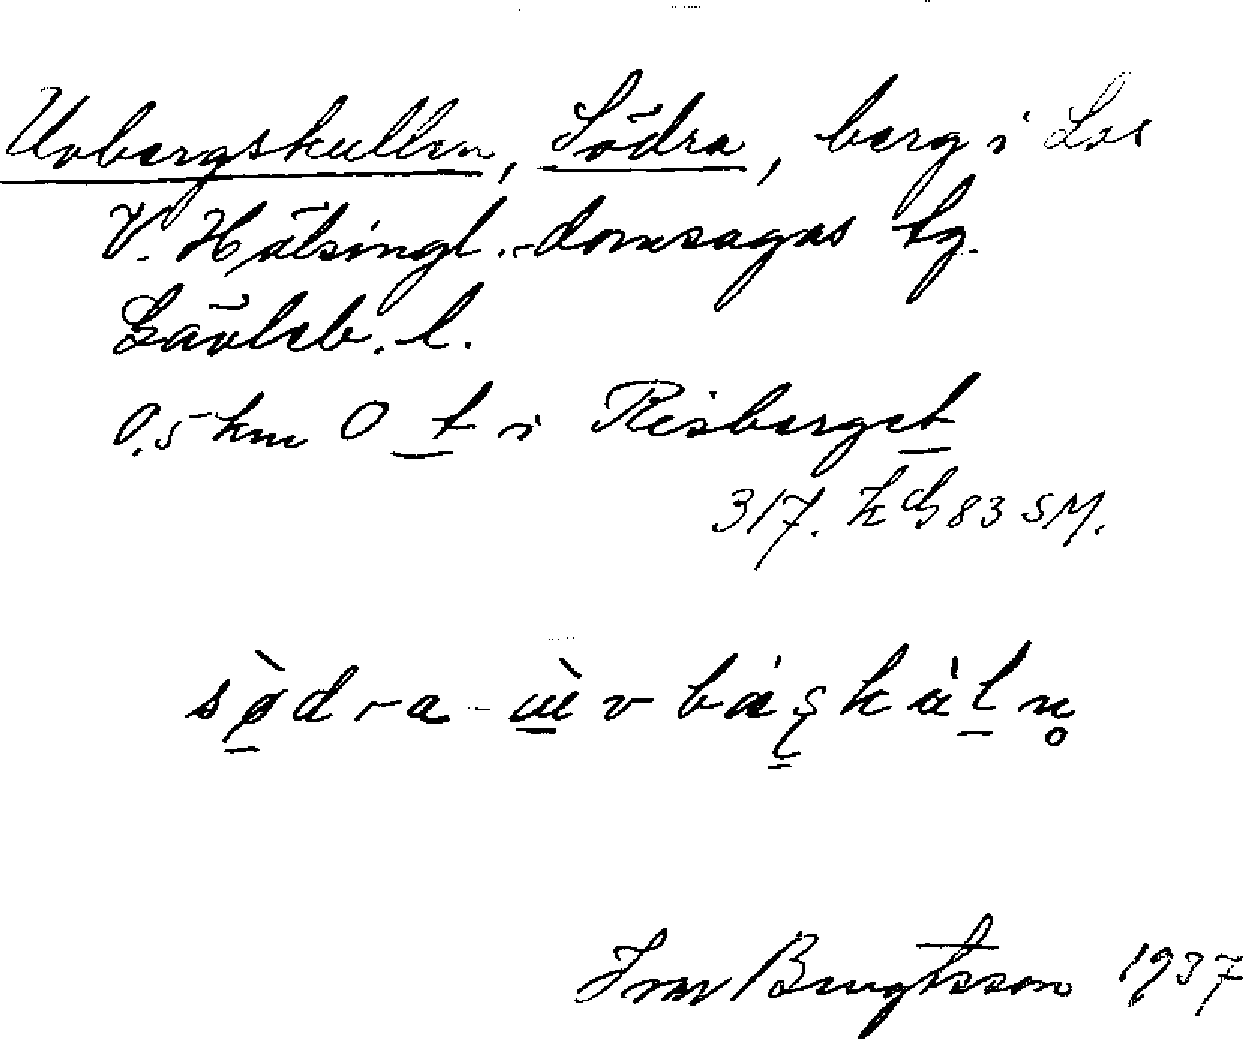 Uvbergskullen, Södra, berg i Los
V. Hälsingl.-domsagas tg.
Gävleb. l.
0,5 km O t i Risberget
317. kG 83 SM.
Ivar Bengtsson 1937